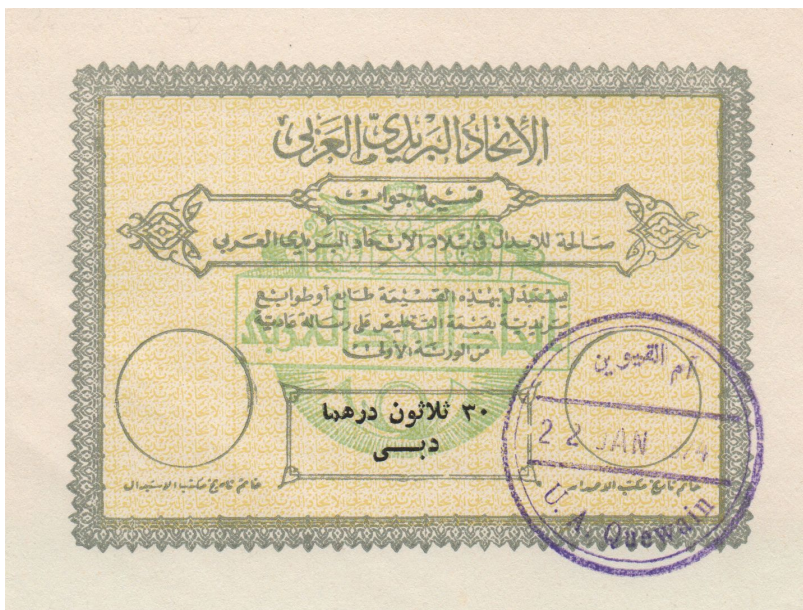 الأتحاد البريدي العربي
قسيمة جواب
صالحة للابدال في بلاد الاتحاد البريدي العربي
يستبدل بهذه القسيمة طابع أو طوابع
بريدية بقيمة التخليص على رسالة عادية
من الوزنة الاولى
٣٠ ثلاثون درهما
دبى
خاتم تاريخ مكتب الاصدار
خاتم تاريخ مكتب الاستبدال
أم القيوين
22 JAN
U. A. Quewain